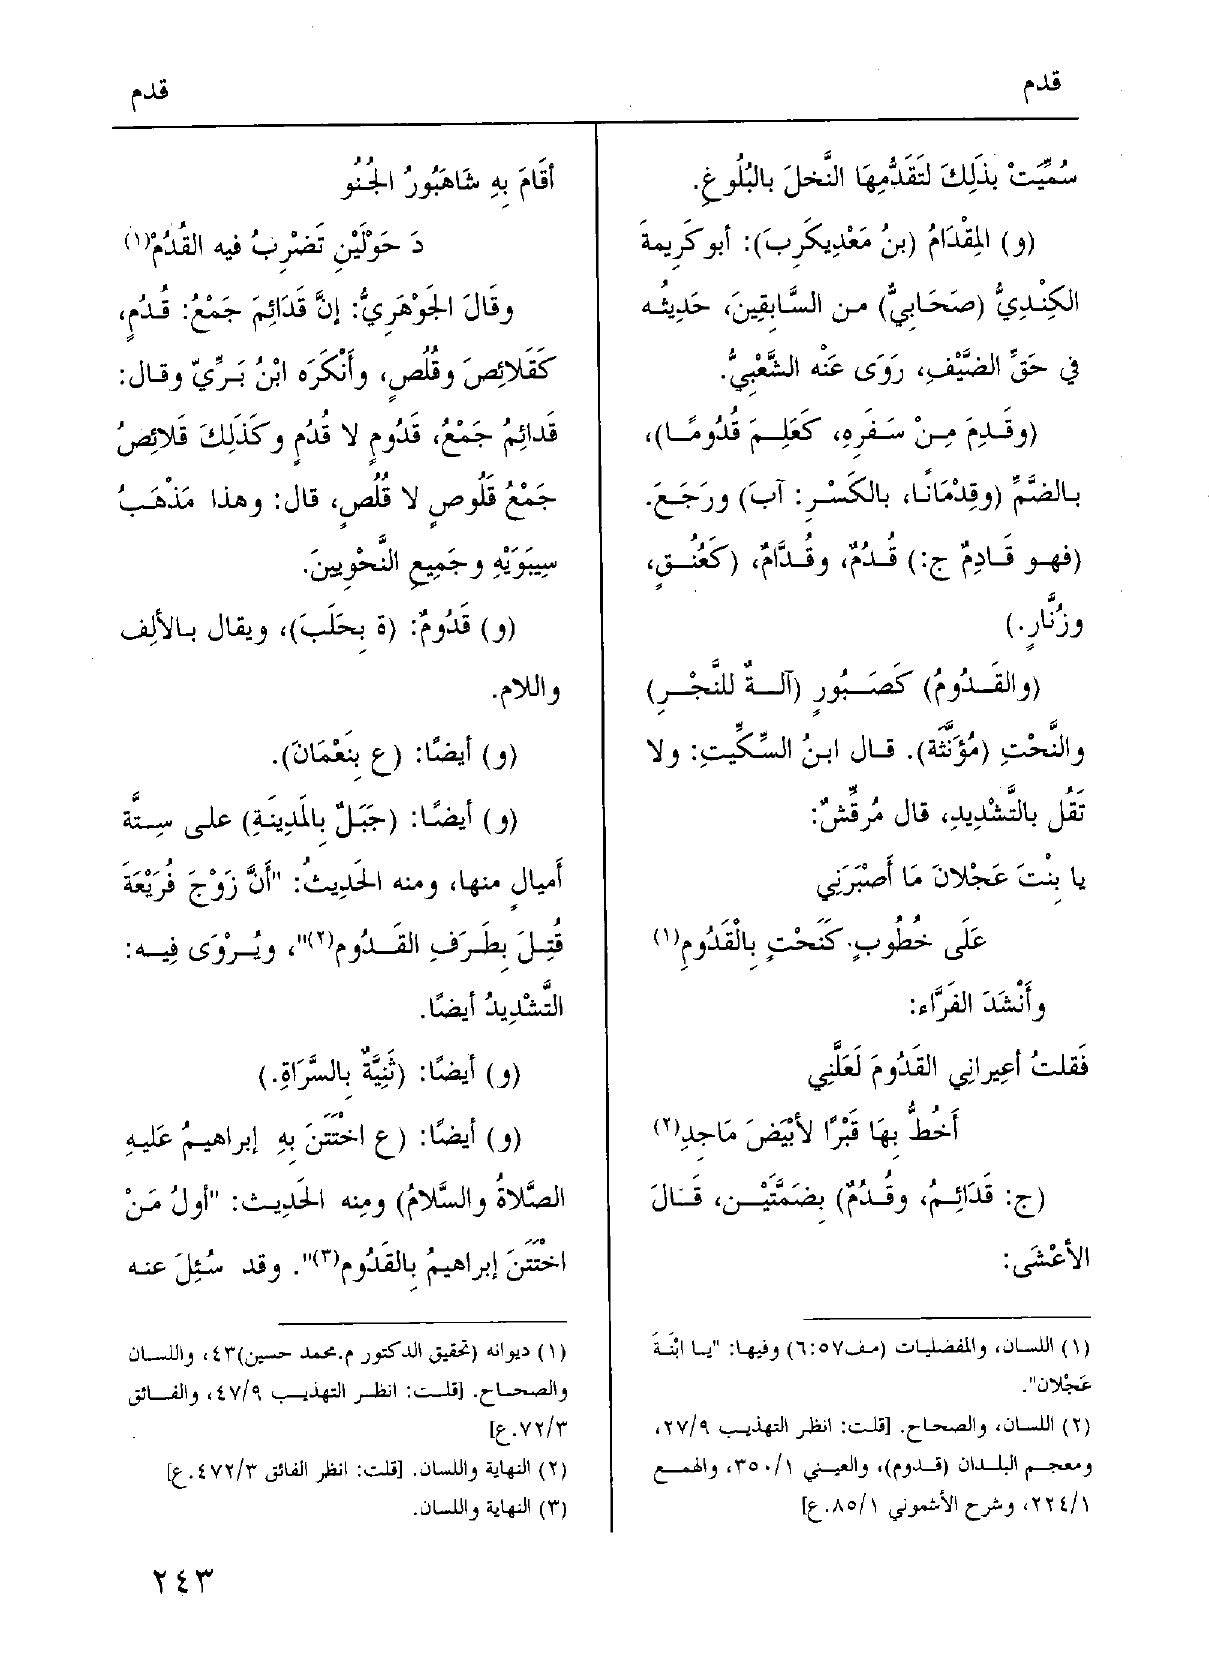 قدم
قدم
سُمِّيَتْ بذَلِكَ لتَقَدُّمِهَا النَّخلَ بالبُلُوغِ.
(و) المِقْدَامُ (بنُ مَعْدِيكَرِبَ): أبو كَرِيمةَ
الكِنْدِيُّ (صَحَابِيٌّ) من السَّابِقِينَ، حَدِيثُه
في حَقِّ الضَّيْفِ، رَوَى عَنْه الشَّعْبِيُّ.
(وقَدِمَ مِنْ سَفَرِهِ، كَعَلِمَ قُدُومًا)،
بالضَّمِّ (وقِدْمَانًا، بالكَسْرِ: آبَ) ورَجَعَ.
(فهو قَادِمٌ ج:) قُدُمٌ، وقُدَّامٌ، (كَعُنُقٍ،
وزُنَّارٍ.)
(والقَدُومُ) كَصَبُورٍ (آلةٌ للنَّجْرِ)
والنَّحْتِ (مُؤَنَّثَة). قال ابنُ السِّكِّيتِ: ولا
تَقُل بالتَّشْدِيدِ، قال مُرقِّشٌ:
يا بِنْتَ عَجْلانَ مَا أَصْبَرَنِي
عَلَى خُطُوبٍ كَنَحْتٍ بِالْقَدُومِ(١)
وأَنْشَدَ الفَرَّاء:
فَقلتُ أعِيرانِي القَدُومَ لَعَلَّنِي
أَخُطُّ بِهَا قَبْرًا لأَبْيَضَ مَاجِدِ(٢)
(ج: قَدَائِمُ، وقُدُمٌ) بِضَمَّتَيْنِ، قَالَ
الأَعْشَى:
(١) اللسان، والمفضليات (مف٦:٥٧) وفيها: "يا ابْنَةَ
عَجْلان".
(٢) اللسان، والصحاح. [قلت: انظر التهذيب ٢٧/٩،
ومعجم البلدان (قدوم)، والعيني ٣٥٠/١، والهمع
٢٢٤/١، وشرح الأشموني ٨٥/١.ع]
أقَامَ بِهِ شَاهَبُورُ الجُنُو
دَ حَوْلَيْنِ تَضْرِبُ فيه القُدُمْ(١)
وقَالَ الجَوْهَرِيُّ: إنَّ قَدَائِمَ جَمْعُ: قُدُمٍ،
كَقَلائِصَ وقُلُصٍ، وأَنْكَرَه ابْنُ بَرِّيّ وقال:
قَدائِمُ جَمْعُ، قَدُومٍ لا قُدُمٍ وكَذَلِكَ قَلائِصُ
جَمْعُ قَلُوصٍ لا قُلُصٍ، قال: وهذا مَذْهَبُ
سِيبَوَيْهِ وجَمِيعِ النَّحْوِيينَ.
(و) قَدُومٌ: (ة بِحَلَبَ)، ويقال بالألِف
واللام.
(و) أيضًا: (ع بِنَعْمَانَ).
(و) أيضًا: (جَبَلٌ بِالمَدِينَةِ) على سِتَّة
أَميالٍ منها، ومنه الحَدِيثُ: "أَنَّ زَوْجَ فُرَيْعَةَ
قُتِلَ بِطَرَفِ القَدُومِ(٢)"، ويُرْوَى فِيه:
التَّشْدِيدُ أيضًا.
(و) أيضًا: (ثَنِيَّةٌ بِالسَّرَاةِ.)
(و) أيضًا: (ع اخْتَتَنَ بِهِ إبراهيمُ عَليهِ
الصَّلاةُ والسَّلامُ) ومِنه الحَدِيث: "أولُ مَنْ
اخْتَتَنَ إبراهيمُ بِالقَدُومِ(٣)". وقد سُئِلَ عنه
(١) ديوانه (تحقيق الدكتور م.محمد حسين)٤٣، واللسان
والصحاح. [قلت: انظر التهذيب ٤٧/٩، والفائق
٧٢/٣.ع]
(٢) النهاية واللسان. [قلت: انظر الفائق ٤٧٢/٣.ع]
(٣) النهاية واللسان.
٢٤٣